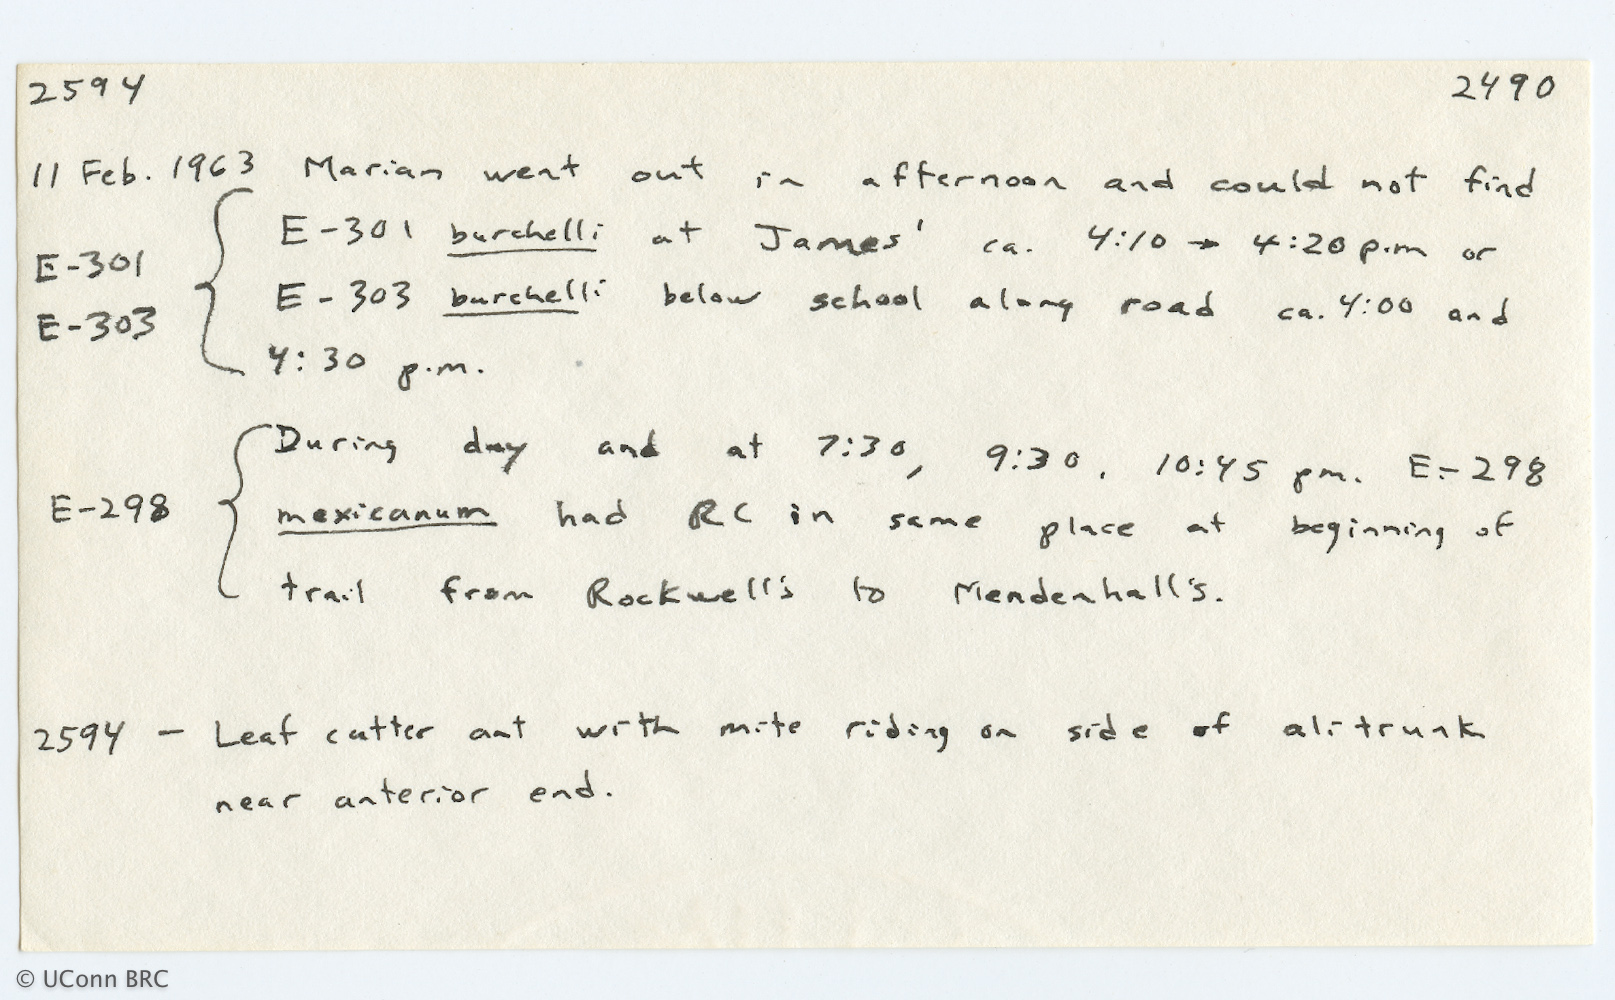 2594 2490
11 Feb. 1963 Marian went out in afternoon and could not find
E-301 burchelli at James' ca. 4:10 → 4:20 p.m or
E-301
E-303 burchelli below school along road ca. 4:00 and
E-303
4:30 p.m.
During day and at 7:30, 9:30, 10:45 pm. E-298
E-298 mexicanum had RC in same place at beginning of
trail from Rockwell's to Mendenhall's.
2594 - Leaf cutter ant with mite riding on side of alitrunk
near anterior end.
© UConn BRC